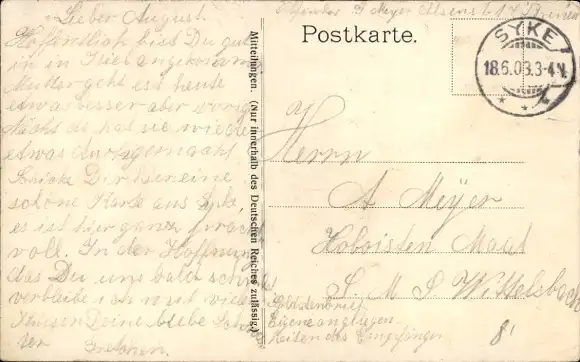 Lieber August.
Hoffentlich bist Du gut
in in Kiel angekommen
Mutter geht est heute
etwas besser aber vorige
Nacht da hat sie wieder
etwas durchgemacht
Schicke Dir hier eine
schöne Karte aus Syke
es ist hier ganz pracht
voll. In der Hoffnung
das Du uns bald schreibst
verbleibe ich mit vielen
Küssen Deine liebe Schwes
ter
Gretchen.
Mitteilungen. (Nur innerhalb des Deutschen Reiches zulässig.)
Absender G Meyer
Postkarte.
SYKE
18.6.08.3-4N.
An
Herrn
A Meyer
Hoboisten Maat
S M S Wittelsbach
Soldatenbrief
Eigene angelegen
heiten des Empfängers
8'